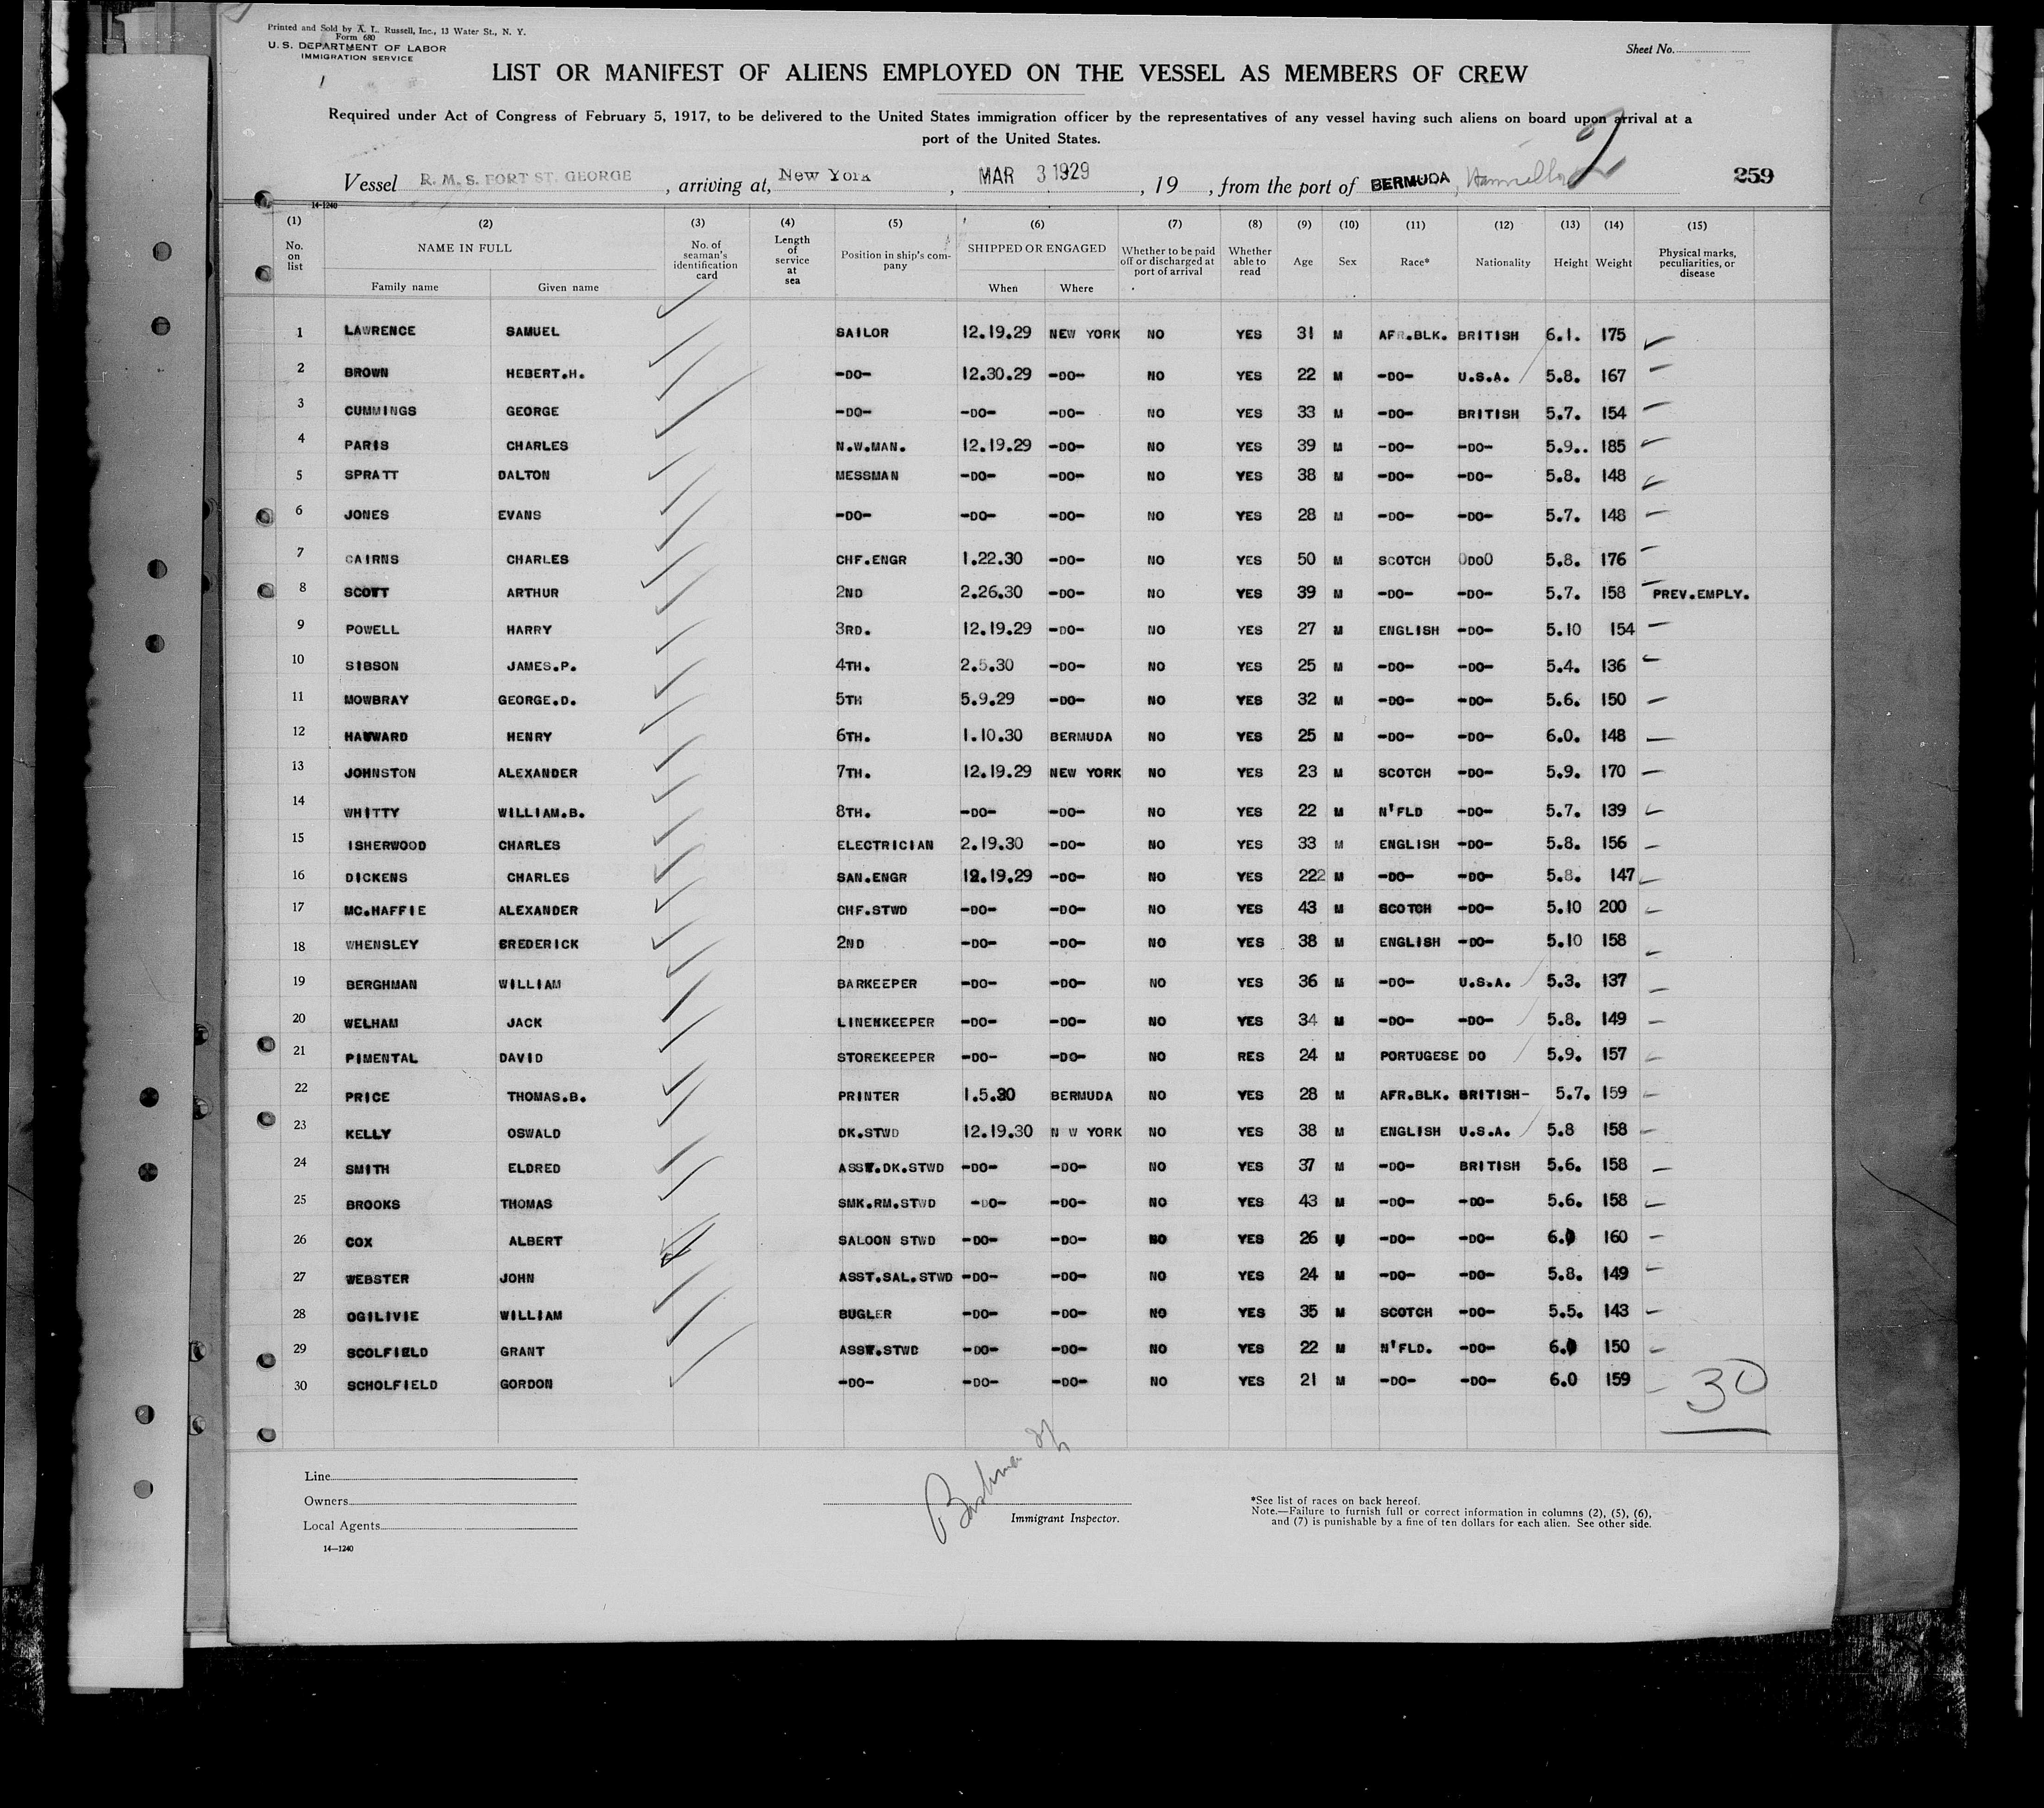 Printed and Sold by A. L. Russell, Inc., 13 Water St., N. Y.
Form 680
U. S. DEPARTMENT OF LABOR
IMMIGRATION SERVICE
Sheet No.
LIST OR MANIFEST OF ALIENS EMPLOYED ON THE VESSEL AS MEMBERS OF CREW
Required under Act of Congress of February 5, 1917, to be delivered to the United States immigration officer by the representatives of any vessel having such aliens on board upon arrival at a
port of the United States.
Vessel R. M. S. FORT ST. GEORGE, arriving at, New York, MAR 3 1929, 19 , from the port of BERMUDA, 259
14-1240
(1) (2) (3) (4) (5) (6) (7) (8) (9) (10) (11) (12) (13) (14) (15)
No. on list NAME IN FULL No. of seaman's identification card Length of service at sea Position in ship's company SHIPPED OR ENGAGED Whether to be paid off or discharged at port of arrival Whether able to read Age Sex Race* Nationality Height Weight Physical marks, peculiarities, or disease
Family name Given name When Where
1 LAWRENCE SAMUEL SAILOR 12.19.29 NEW YORK NO YES 31 M AFR.BLK. BRITISH 6.1. 175
2 BROWN HEBERT.H. -DO- 12.30.29 -DO- NO YES 22 M -DO- U.S.A. 5.8. 167
3 CUMMINGS GEORGE -DO- -DO- -DO- NO YES 33 M -DO- BRITISH 5.7. 154
4 PARIS CHARLES N.W.MAN. 12.19.29 -DO- NO YES 39 M -DO- -DO- 5.9.. 185
5 SPRATT DALTON MESSMAN -DO- -DO- NO YES 38 M -DO- -DO- 5.8. 148
6 JONES EVANS -DO- -DO- -DO- NO YES 28 M -DO- -DO- 5.7. 148
7 CAIRNS CHARLES CHF.ENGR 1.22.30 -DO- NO YES 50 M SCOTCH 0DO0 5.8. 176
8 SCOTT ARTHUR 2ND 2.26.30 -DO- NO YES 39 M -DO- -DO- 5.7. 158 PREV.EMPLY.
9 POWELL HARRY 3RD. 12.19.29 -DO- NO YES 27 M ENGLISH -DO- 5.10 154
10 SIBSON JAMES.P. 4TH. 2.5.30 -DO- NO YES 25 M -DO- -DO- 5.4. 136
11 MOWBRAY GEORGE.D. 5TH 5.9.29 -DO- NO YES 32 M -DO- -DO- 5.6. 150
12 HAYWARD HENRY 6TH. 1.10.30 BERMUDA NO YES 25 M -DO- -DO- 6.0. 148
13 JOHNSTON ALEXANDER 7TH. 12.19.29 NEW YORK NO YES 23 M SCOTCH -DO- 5.9. 170
14 WHITTY WILLIAM.B. 8TH. -DO- -DO- NO YES 22 M N'FLD -DO- 5.7. 139
15 ISHERWOOD CHARLES ELECTRICIAN 2.19.30 -DO- NO YES 33 M ENGLISH -DO- 5.8. 156
16 DICKENS CHARLES SAN.ENGR 12.19.29 -DO- NO YES 222 M -DO- -DO- 5.8. 147
17 MC.HAFFIE ALEXANDER CHF.STWD -DO- -DO- NO YES 43 M SCOTCH -DO- 5.10 200
18 WHENSLEY BREDERICK 2ND -DO- -DO- NO YES 38 M ENGLISH -DO- 5.10 158
19 BERGHMAN WILLIAM BARKEEPER -DO- -DO- NO YES 36 M -DO- U.S.A. 5.3. 137
20 WELHAM JACK LINENKEEPER -DO- -DO- NO YES 34 M -DO- -DO- 5.8. 149
21 PIMENTAL DAVID STOREKEEPER -DO- -DO- NO RES 24 M PORTUGESE DO 5.9. 157
22 PRICE THOMAS.B. PRINTER 1.5.30 BERMUDA NO YES 28 M AFR.BLK. BRITISH- 5.7. 159
23 KELLY OSWALD DK.STWD 12.19.30 N W YORK NO YES 38 M ENGLISH U.S.A. 5.8 158
24 SMITH ELDRED ASST.DK.STWD -DO- -DO- NO YES 37 M -DO- BRITISH 5.6. 158
25 BROOKS THOMAS SMK.RM.STWD -DO- -DO- NO YES 43 M -DO- -DO- 5.6. 158
26 COX ALBERT SALOON STWD -DO- -DO- NO YES 26 M -DO- -DO- 6.0 160
27 WEBSTER JOHN ASST.SAL.STWD -DO- -DO- NO YES 24 M -DO- -DO- 5.8. 149
28 OGILIVIE WILLIAM BUGLER -DO- -DO- NO YES 35 M SCOTCH -DO- 5.5. 143
29 SCOLFIELD GRANT ASST.STWD -DO- -DO- NO YES 22 M N'FLD. -DO- 6.0 150
30 SCHOLFIELD GORDON -DO- -DO- -DO- NO YES 21 M -DO- -DO- 6.0 159
30
Line
Owners
Local Agents
Immigrant Inspector.
*See list of races on back hereof.
Note.—Failure to furnish full or correct information in columns (2), (5), (6),
and (7) is punishable by a fine of ten dollars for each alien. See other side.
14—1240